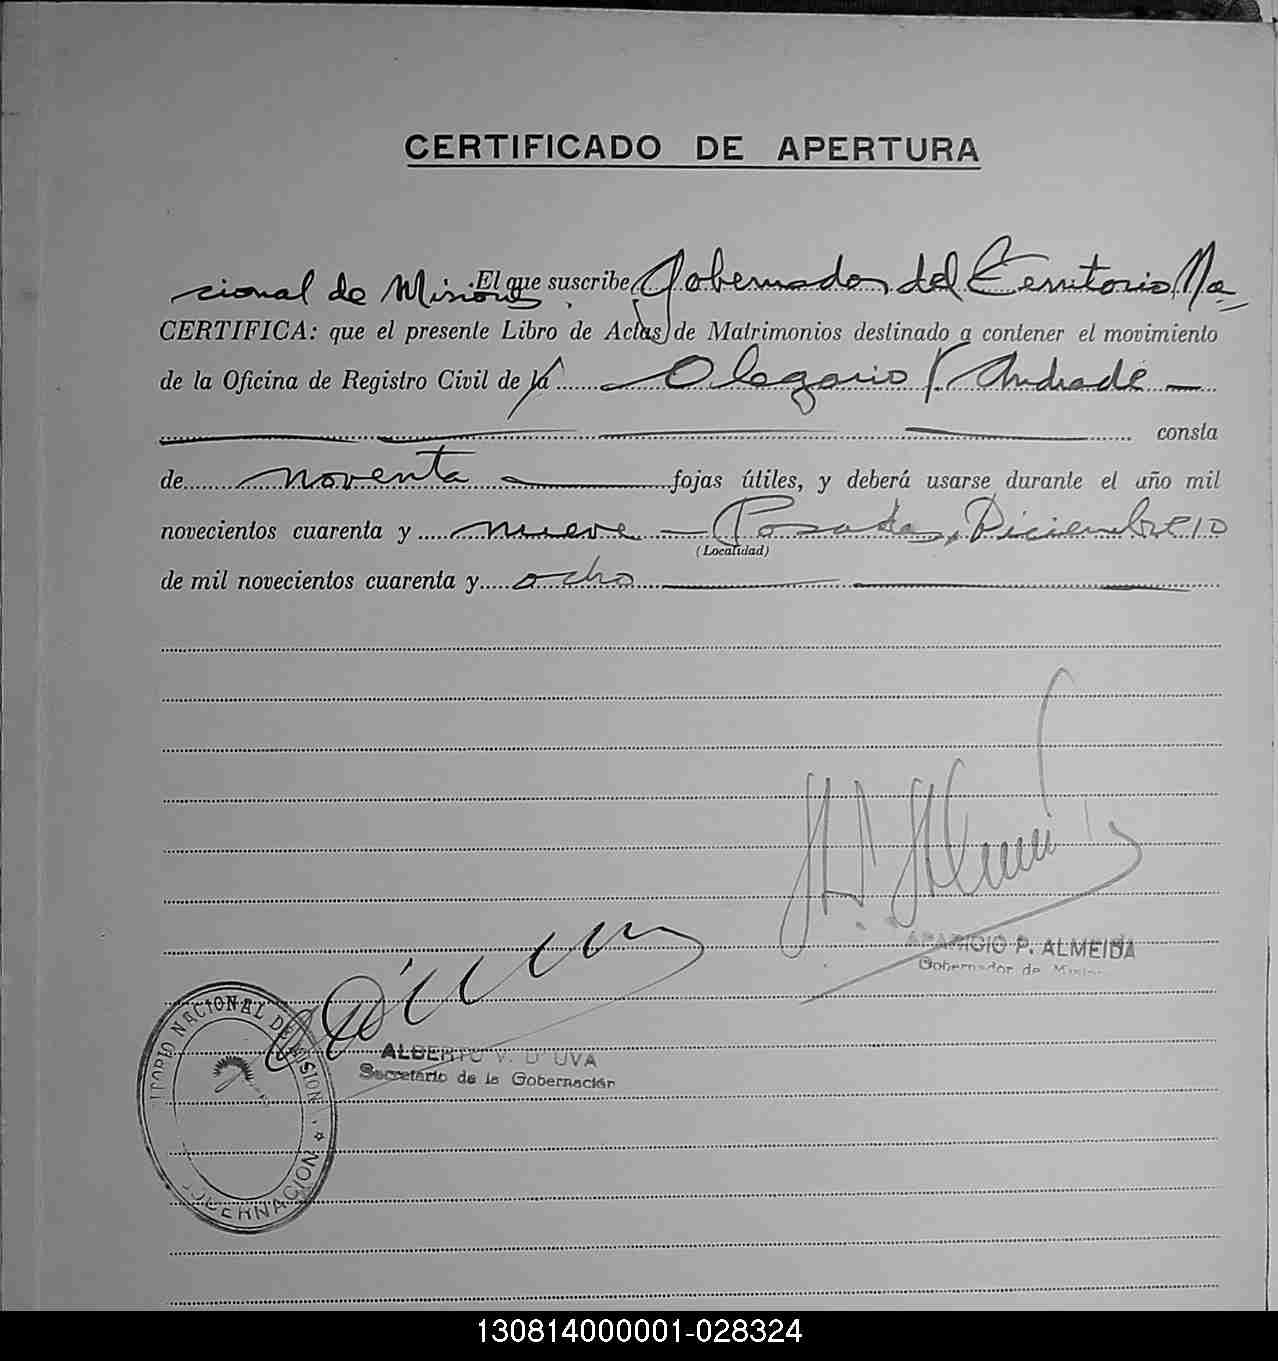 CERTIFICADO DE APERTURA
El que suscribe, Gobernador del Territorio Na-
cional de Misiones
CERTIFICA: que el presente Libro de Actas de Matrimonios destinado a contener el movimiento
de la Oficina de Registro Civil de la Olegario V. Andrade
consta
de noventa fojas útiles, y deberá usarse durante el año mil
novecientos cuarenta y nueve Posadas, Diciembre 10
(Localidad)
de mil novecientos cuarenta y ocho
APARICIO P. ALMEIDA
Gobernador de Misiones
ALBERTO V. D'UVA
Secretario de la Gobernación
TERRITORIO NACIONAL DE MISIONES
GOBERNACION
130814000001-028324